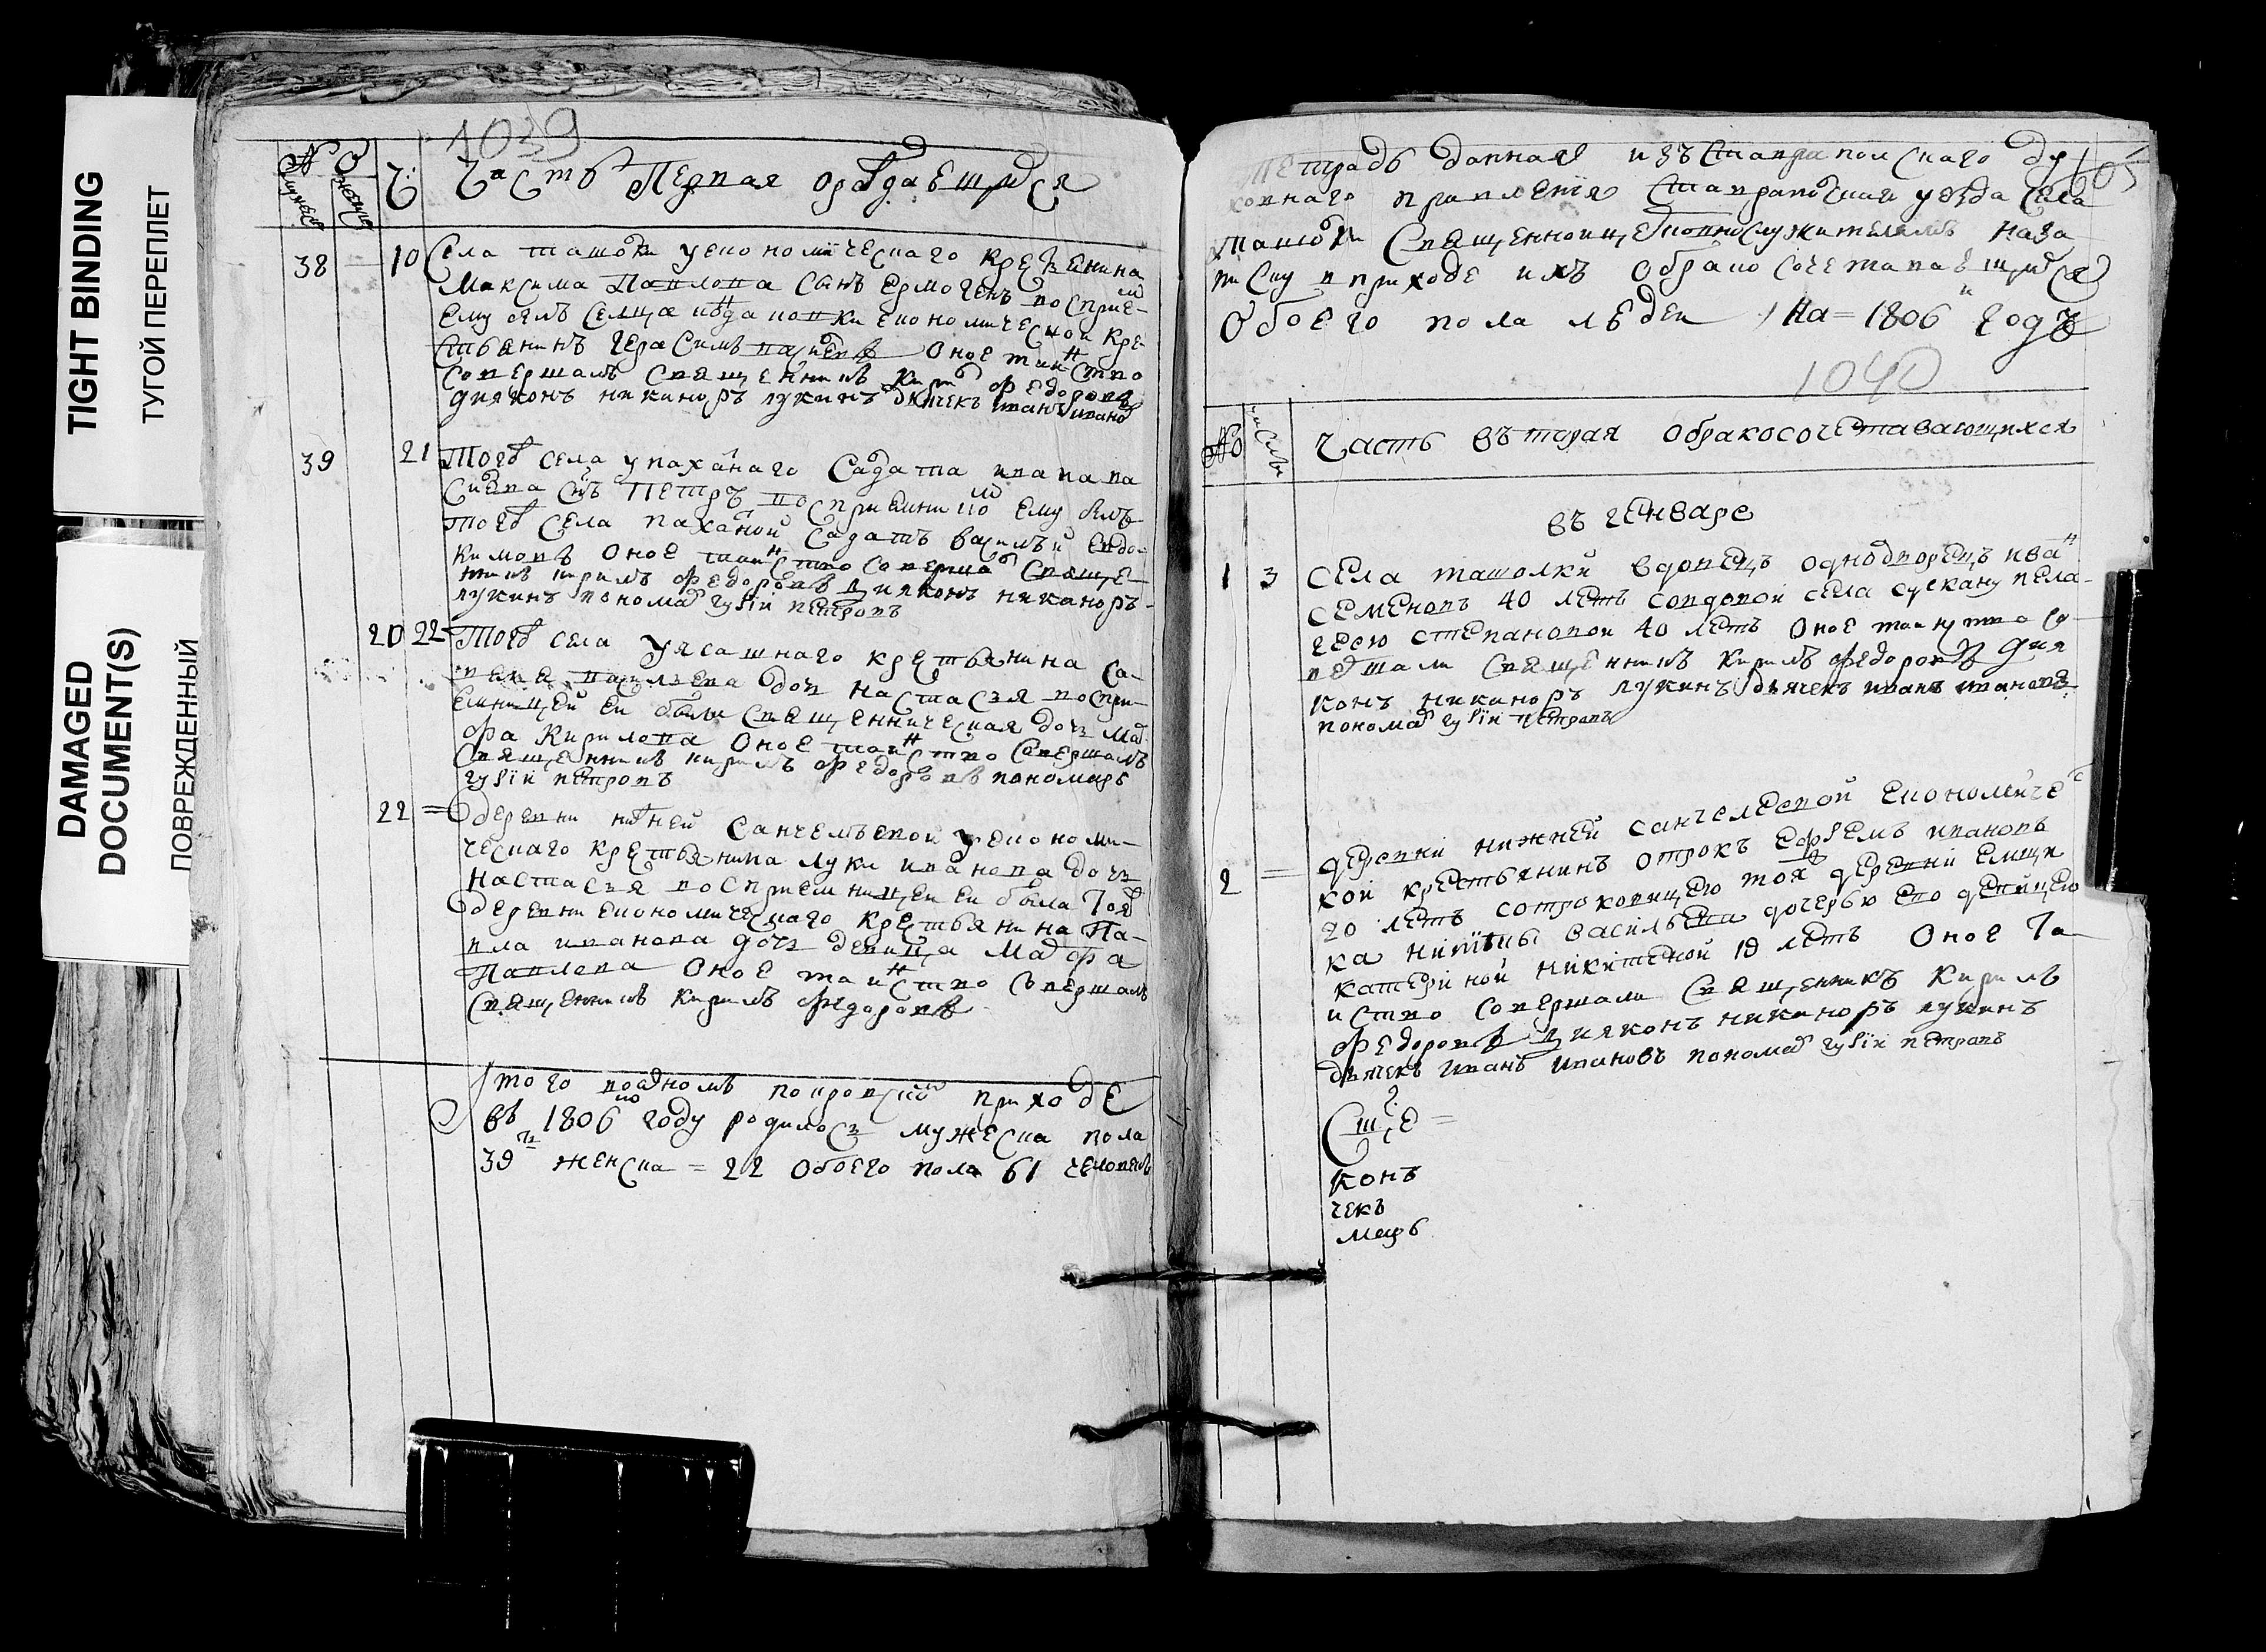 TIGHT BINDING
ТУГОЙ ПЕРЕПЛЕТ
DAMAGED
DOCUMENT(S)
ПОВРЕЖДЕННЫЙ
1039
№ Ч. Часть Первая о раждаещихся
38 10 Села ташолки уекономическаго кресьянина
Максима Павлова сынъ Ермогенъ восприе-
ему былъ економической кре-
стьянинъ герасимъ Оное таинство
совершалъ священникъ кирилъ федоровъ
диаконъ никаноръ лукинъ дьячекъ иванъ ивано
39 21 Тогожъ села упаханаго Садата ивана ва
сильева снъ Петръ восприемником ему былъ
тогожъ села паханой Садатъ василий евдо-
кимовъ Оное таинство совершалъ Свяще-
нникъ кирилъ федоровъ диаконъ никаноръ
лукинъ пономарь гурiй петровъ
20 22 Тогожъ села уясашнаго кретьянина са-
васильева дочь настасья воспри-
емницей ей была священническая дочь мар
фа Кирилова Оное таинство совершалъ
Священникъ кирилъ федоровъ пономарь
гурiй петровъ
22 = деревни нижней Санчелеевой уекономи-
ческаго кретьянина луки иванова дочь
настасья восприемницей ей была Тояжъ
деревни економическаго кретьянина Па-
вла иванова дочь девица Марфа
Павлова Оное таинство совершалъ
Священникъ Кирилъ федоровъ
Итого воодномъ покровской приходе
въ 1806 году родилось мужеска пола
39 женска = 22 Обоего пола 61 человекъ
105
Тетрадь данная изъ Ставрапольскаго ду
ховнаго правления Ставрапольской уезда села
ташолки Священноицерковнослужителямъ наза
писку вприходе ихъ Обрако сочетаваещихся
Обоего пола людей / На = 1806 годъ
1040
№ числы Часть вътарая обракосочетавающихся
въ генваре
1 3 села ташолки вдовецъ однодворецъ иван
семеновъ 40 летъ совдовой села сускану пела-
геею степановой 40 летъ Оное таинство со-
вершали Священникъ Кирилъ федоровъ диа
конъ никаноръ лукинъ дьячекъ иванъ ивановъ
пономарь гурiй петровъ
2 = деревни нижней санчелеевой економичес
кой крестьянинъ отрокъ ефремъ ивановъ
20 летъ сотроковицею тояжъ деревни емщи
ка никиты васильева дочерью его девицею
катериной никитевой 19 летъ Оное Та
иство совершали Священникъ Кирилъ
федоровъ диаконъ никаноръ лукинъ
дьячекъ иванъ ивановъ пономарь гурiй петровъ
конъ
чекъ
марь